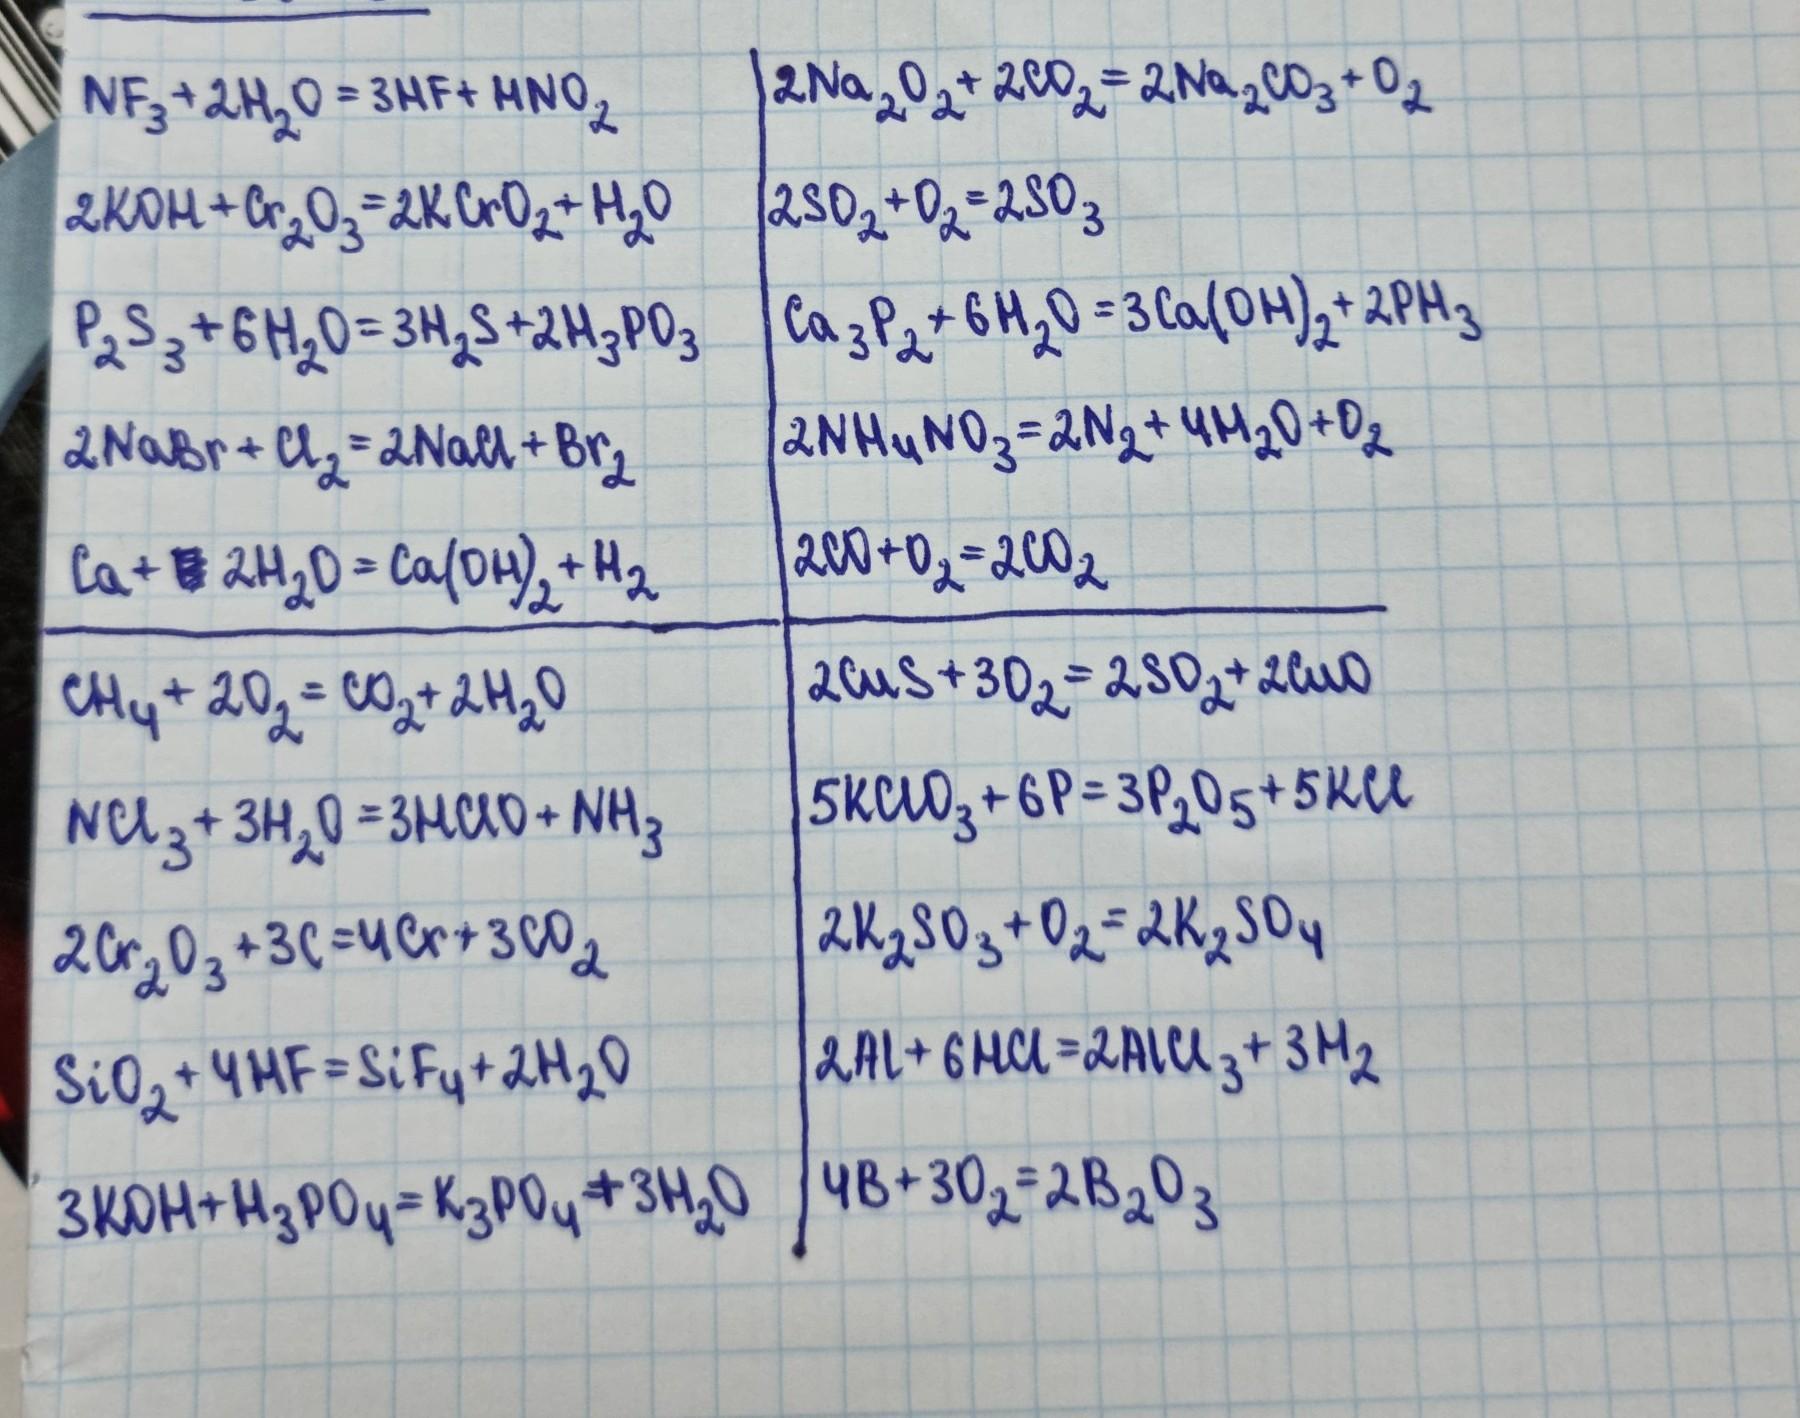 NF₃+2H₂O=3HF+HNO₂
2KOH+Cr₂O₃=2KCrO₂+H₂O
P₂S₃+6H₂O=3H₂S+2H₃PO₃
2NaBr+Cl₂=2NaCl+Br₂
Ca+2H₂O=Ca(OH)₂+H₂
2Na₂O₂+2CO₂=2Na₂CO₃+O₂
2SO₂+O₂=2SO₃
Ca₃P₂+6H₂O=3Ca(OH)₂+2PH₃
2NH₄NO₃=2N₂+4H₂O+O₂
2CO+O₂=2CO₂
CH₄+2O₂=CO₂+2H₂O
NCl₃+3H₂O=3HClO+NH₃
2Cr₂O₃+3C=4Cr+3CO₂
SiO₂+4HF=SiF₄+2H₂O
3KOH+H₃PO₄=K₃PO₄+3H₂O
2CuS+3O₂=2SO₂+2CuO
5KClO₃+6P=3P₂O₅+5KCl
2K₂SO₃+O₂=2K₂SO₄
2Al+6HCl=2AlCl₃+3H₂
4B+3O₂=2B₂O₃